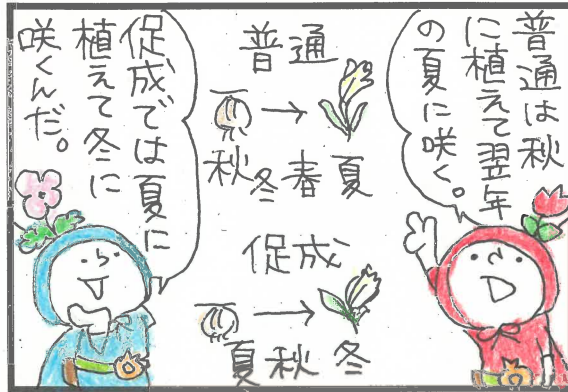 普通は秋
に植えて翌年
の夏に咲く。
普通
秋冬春夏
促成
夏秋冬
促成では夏に
植えて冬に
咲くんだ。